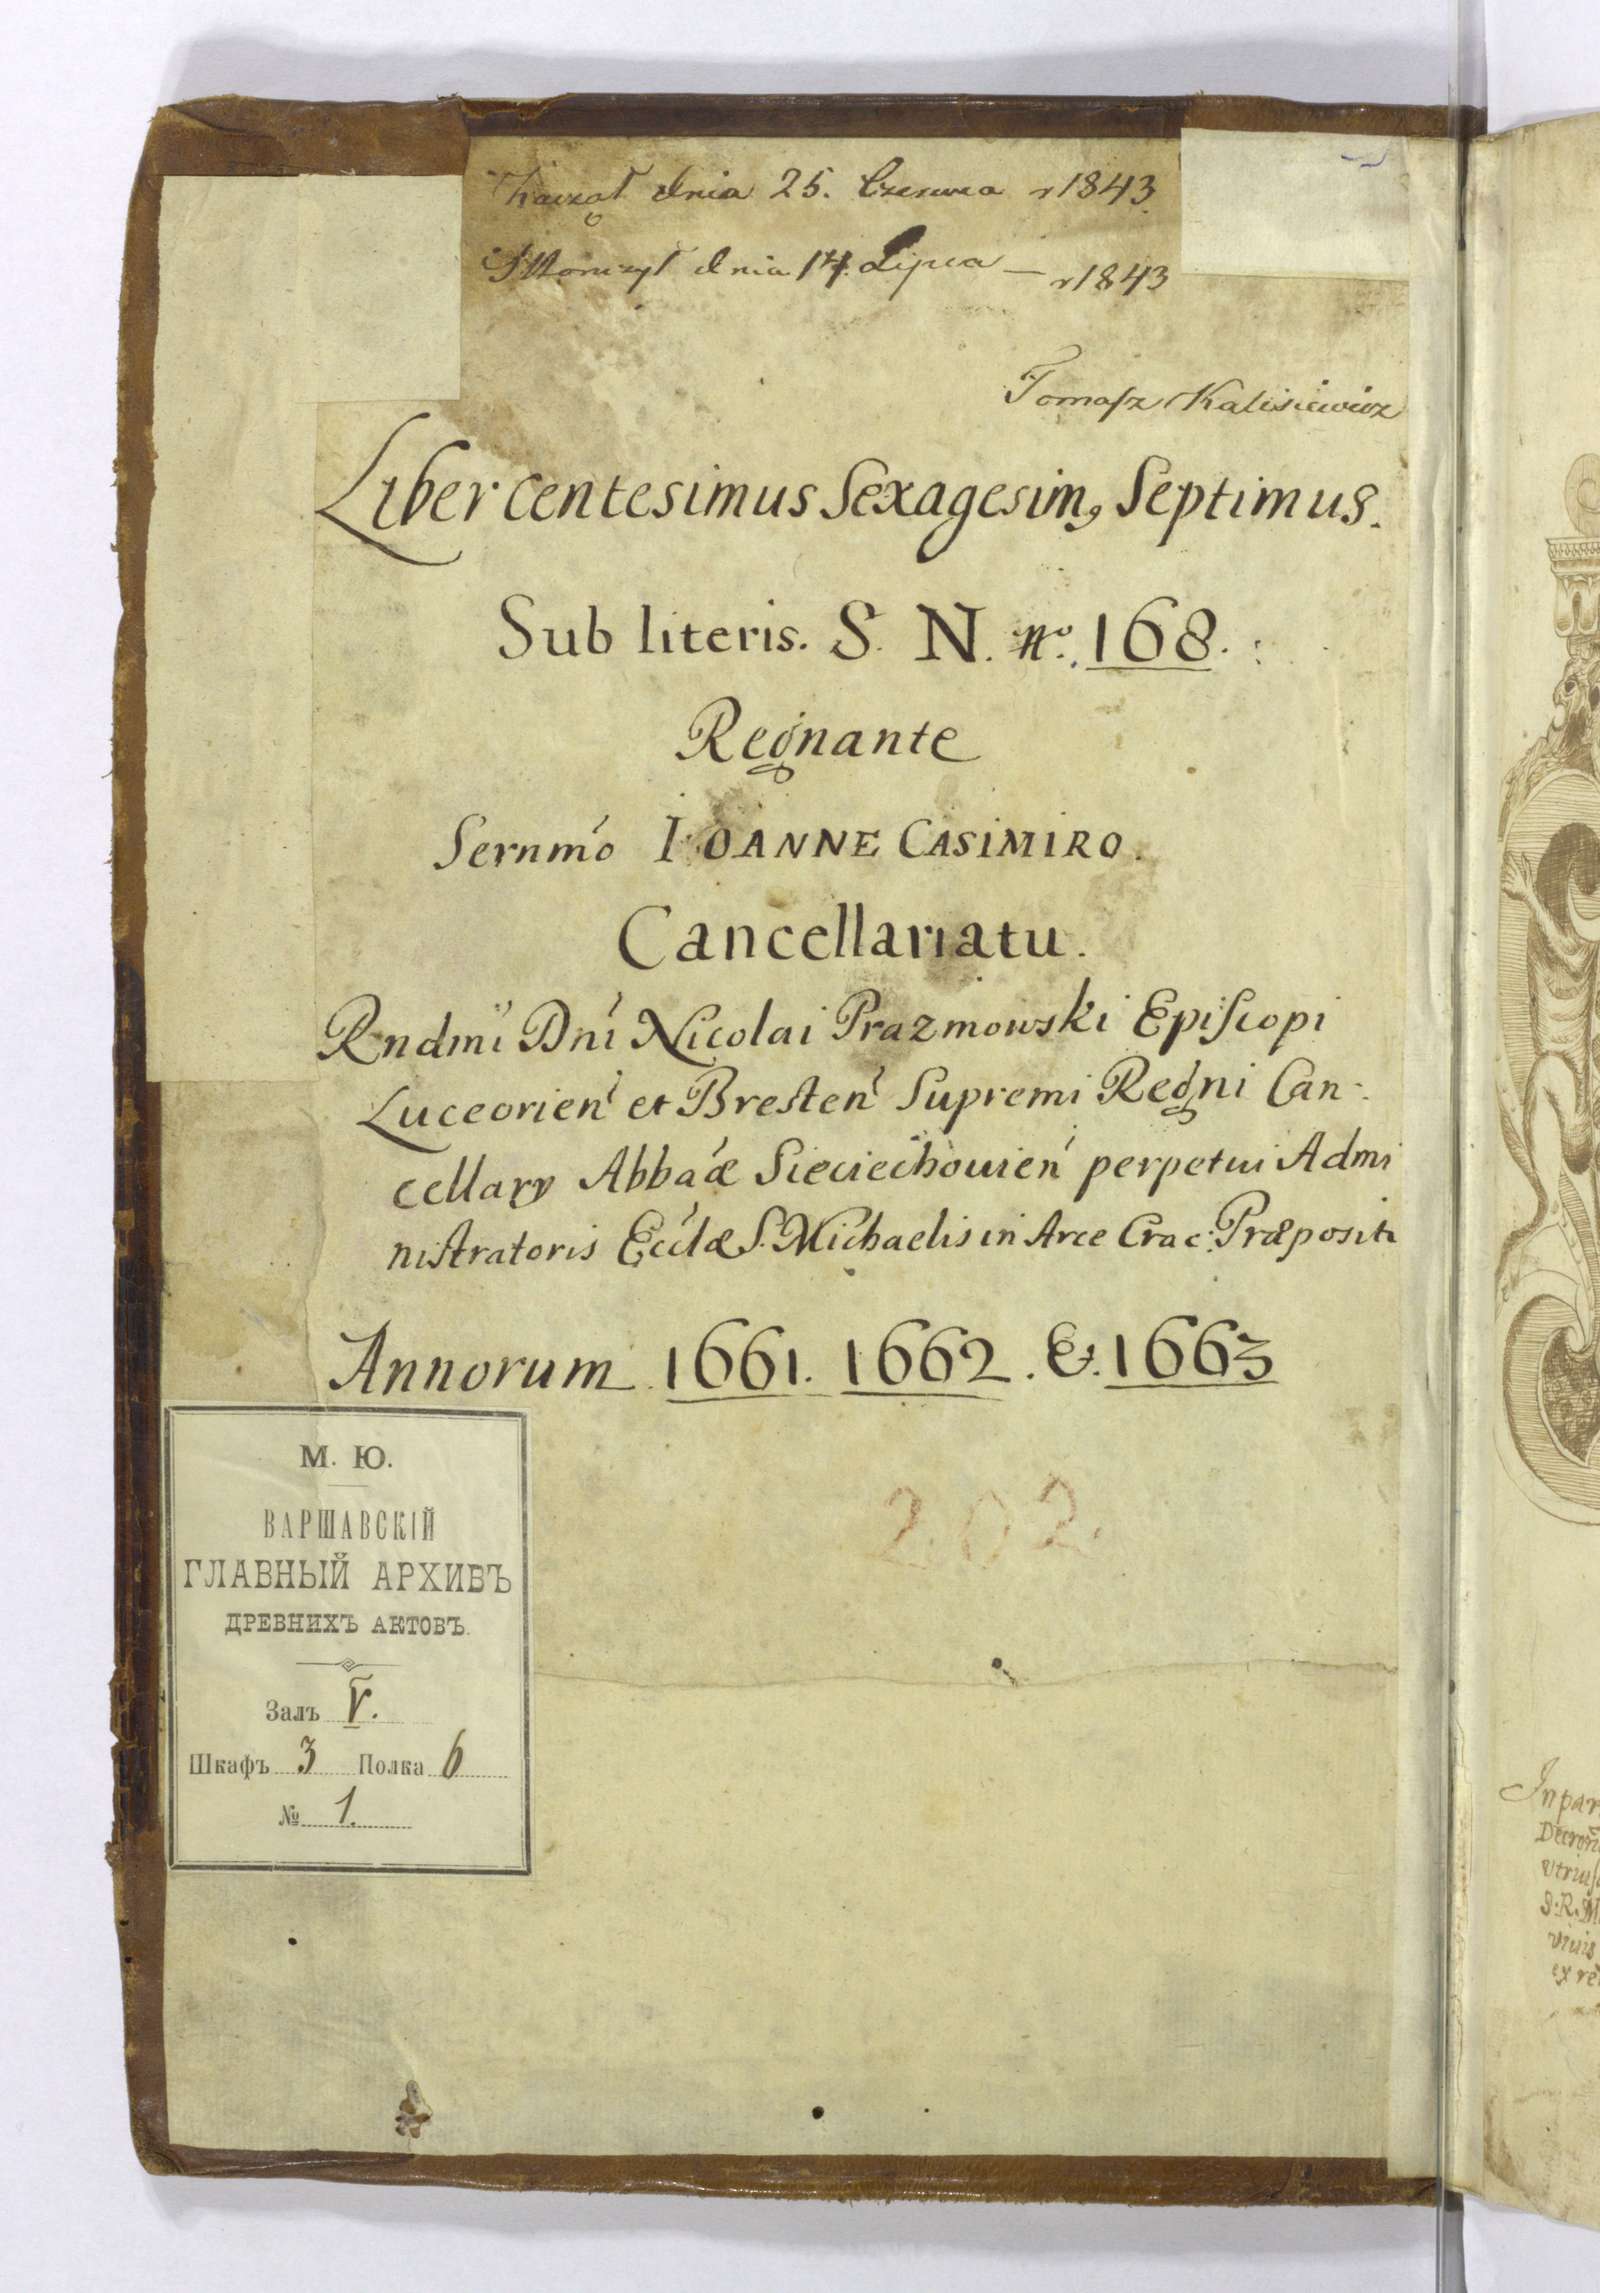 Zaczął dnia 25. Czerwca r 1843.
Skonczył dnia 14. Lipca — r 1843
Tomasz Kalisiewicz
Liber Centesimus Sexagesim9 Septimus.
Sub literis. S. N. No. 168.
Regnante
Sernmo IOANNE CASIMIRO.
Cancellariatu.
Rndmi Dni Nicolai Prazmowski Episcopi
Luceorien et Bresten Supremi Regni Can-
cellary Abbaæ Sieciechowien perpetui Admi
nistratoris Ecclæ S. Michaelis in Arce Crac: Præpositi
Annorum 1661. 1662. & 1663
202.
М. Ю.
ВАРШАВСКІЙ
ГЛАВНЫЙ АРХИВЪ
ДРЕВНИХЪ АКТОВЪ.
Залъ V.
Шкафъ 3 Полка 6
№ 1.
S.R.M
viuis